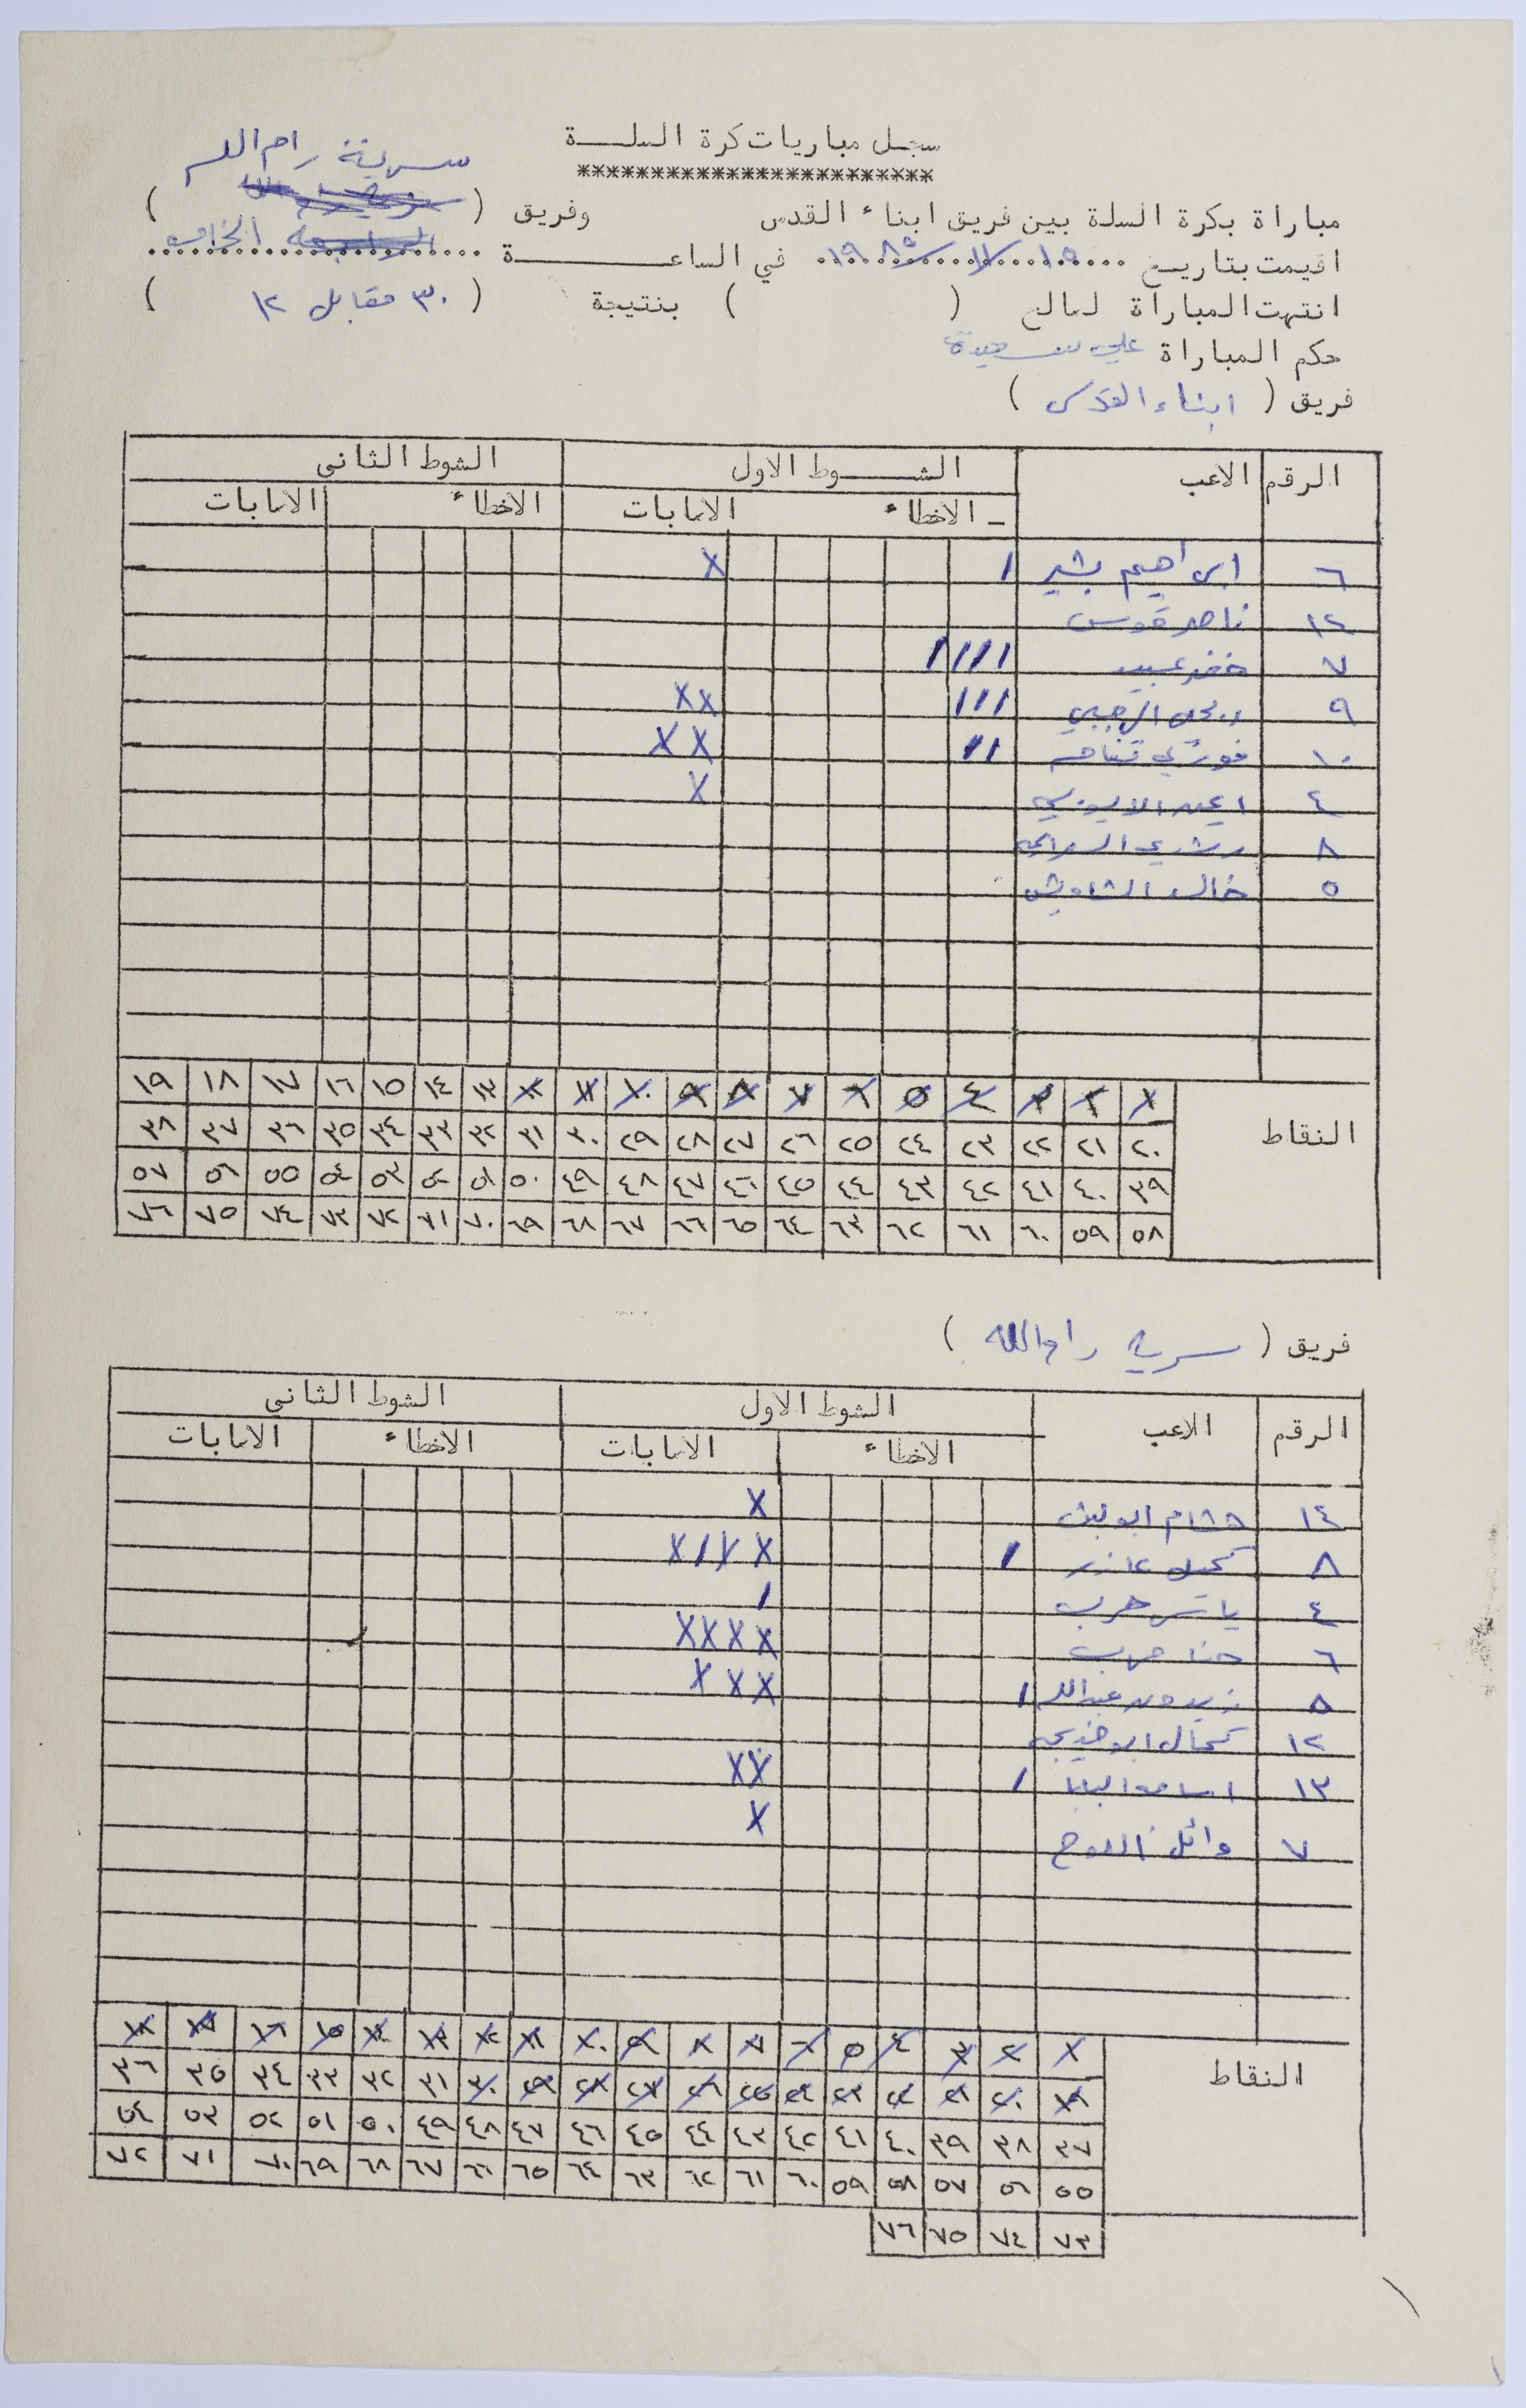 سجل مباريات كرة السلة
************************
سرية رام الله
مباراة بكرة السلة بين فريق ابناء القدس وفريق ( )
اقيمت بتاريخ ١٩ / ١١ / ١٩٨٥ في الساعة الخامسة
انتهت المباراة لصالح ( ) بنتيجة ( ٣٠ مقابل ١٢ )
حكم المباراة علي
فريق ( ابناء القدس )
الرقم الاعب الشوط الاول الشوط الثاني
الاخطاء الاصابات الاخطاء الاصابات
٦ ابراهيم بشير / X
١٢ ناصر قوس
٧ خضر عبيد ////
٩ الرجبي /// XX
١٠ فوزي // XX
٤ X
٨ رشدي
٥ خالد الشاويش
النقاط
١ ٢ ٣ ٤ ٥ ٦ ٧ ٨ ٩ ١٠ ١١ ١٢ ١٣ ١٤ ١٥ ١٦ ١٧ ١٨ ١٩
٢٠ ٢١ ٢٢ ٢٣ ٢٤ ٢٥ ٢٦ ٢٧ ٢٨ ٢٩ ٣٠ ٣١ ٣٢ ٣٣ ٣٤ ٣٥ ٣٦ ٣٧ ٣٨
٣٩ ٤٠ ٤١ ٤٢ ٤٣ ٤٤ ٤٥ ٤٦ ٤٧ ٤٨ ٤٩ ٥٠ ٥١ ٥٢ ٥٣ ٥٤ ٥٥ ٥٦ ٥٧
٥٨ ٥٩ ٦٠ ٦١ ٦٢ ٦٣ ٦٤ ٦٥ ٦٦ ٦٧ ٦٨ ٦٩ ٧٠ ٧١ ٧٢ ٧٣ ٧٤ ٧٥ ٧٦
فريق ( سرية رام الله )
الرقم الاعب الشوط الاول الشوط الثاني
الاخطاء الاصابات الاخطاء الاصابات
١٤ هشام X
٨ كميل عازر / X X / X
٤ ياسر حرب /
٦ حنا حرب XXXX
٥ عبدالله / XXX
١٢ كمال ابو خديجة
١٣ اسامة البابا / XX
٧ وائل X
النقاط
١ ٢ ٣ ٤ ٥ ٦ ٧ ٨ ٩ ١٠ ١١ ١٢ ١٣ ١٤ ١٥ ١٦ ١٧ ١٨
١٩ ٢٠ ٢١ ٢٢ ٢٣ ٢٤ ٢٥ ٢٦ ٢٧ ٢٨ ٢٩ ٣٠ ٣١ ٣٢ ٣٣ ٣٤ ٣٥ ٣٦
٣٧ ٣٨ ٣٩ ٤٠ ٤١ ٤٢ ٤٣ ٤٤ ٤٥ ٤٦ ٤٧ ٤٨ ٤٩ ٥٠ ٥١ ٥٢ ٥٣ ٥٤
٥٥ ٥٦ ٥٧ ٥٨ ٥٩ ٦٠ ٦١ ٦٢ ٦٣ ٦٤ ٦٥ ٦٦ ٦٧ ٦٨ ٦٩ ٧٠ ٧١ ٧٢
٧٣ ٧٤ ٧٥ ٧٦